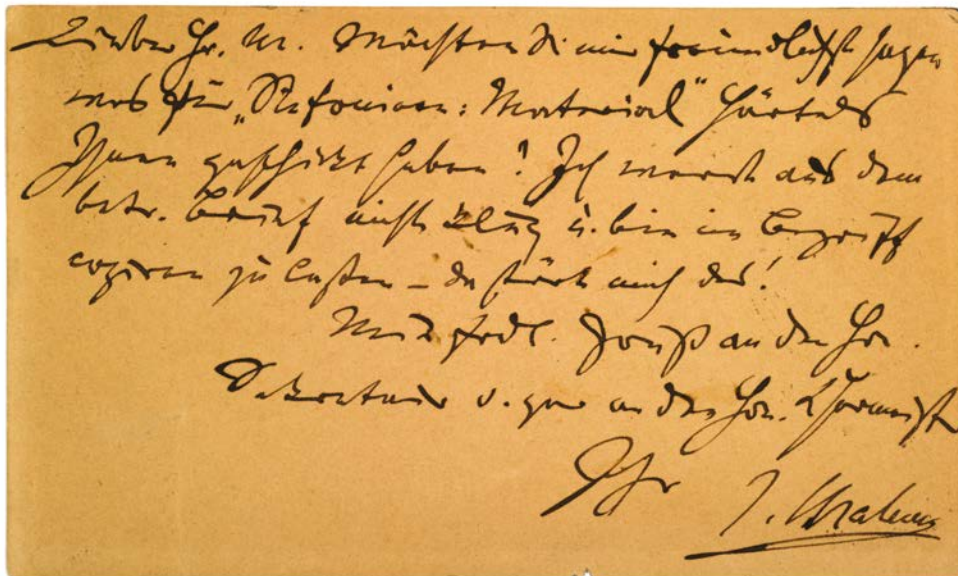 Lieber Hr. M. Möchten Sie mir freundlichst sagen
was für „Sinfonieen-Material" Härtels
Ihnen geschickt haben? Ich werde aus dem
betr. Brief nicht klug u. bin im Begriff
copiren zu lassen – da stört mich das!
Mit frdl. Gruß an den Hrn.
Sekretair u. an den Hrn.
Ihr J. Brahms